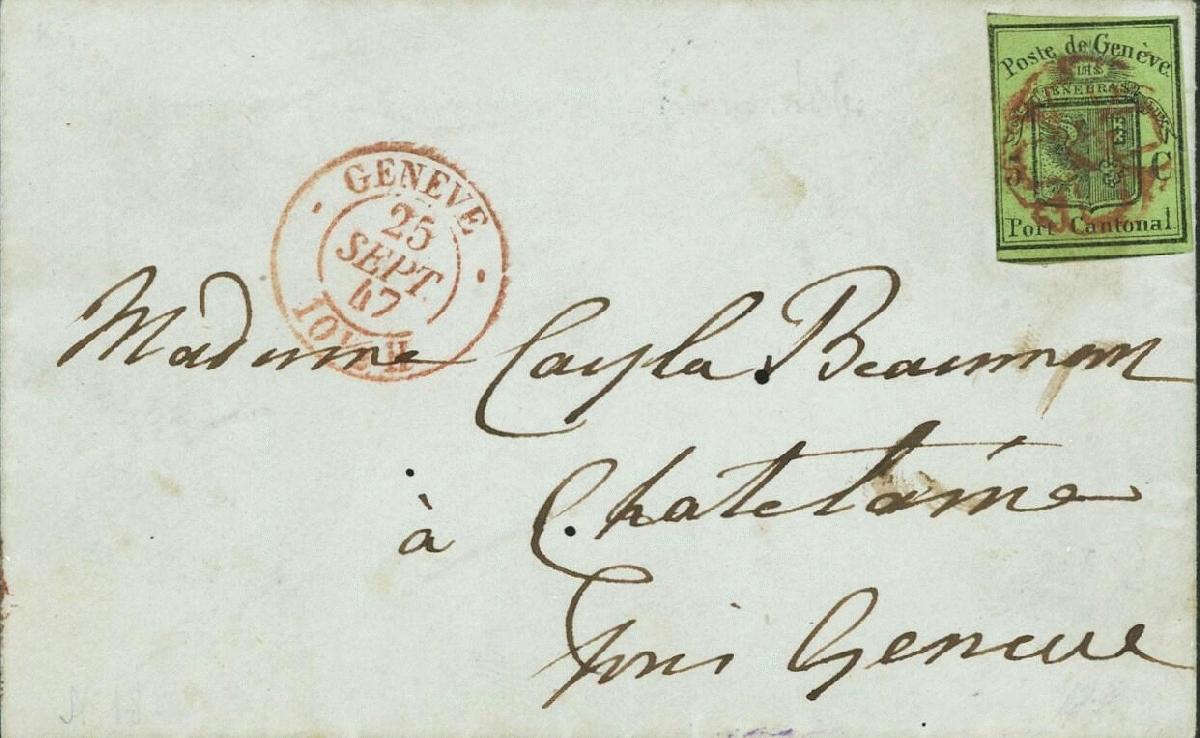 Poste de Genève
POST TENEBRAS LUX
5 C
Port Cantonal.
GENÈVE
25
SEPT.
47
10 V. H
Madame Cayla Beaumont
à Chatelaine
près Geneve